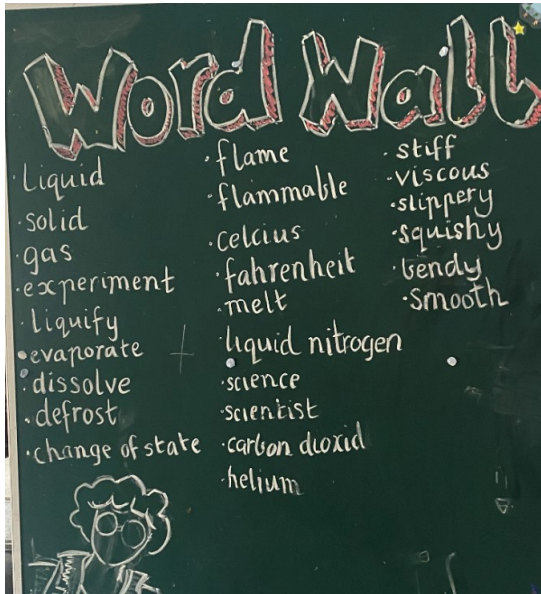 Word Wall
· Liquid
· solid
· gas
· experiment
· liquify
· evaporate
· dissolve
· defrost
· change of state
· flame
· flammable
· celcius
· fahrenheit
· melt
· liquid nitrogen
· science
· scientist
· carbon dioxid
· helium
· stiff
· viscous
· slippery
· squishy
· bendy
· smooth